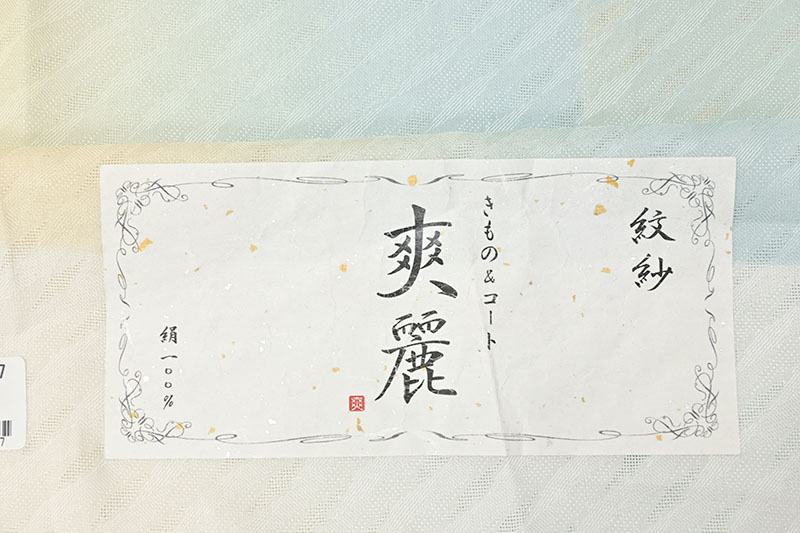 紋紗
きもの&コート
爽麗
絹一〇〇%
7
7